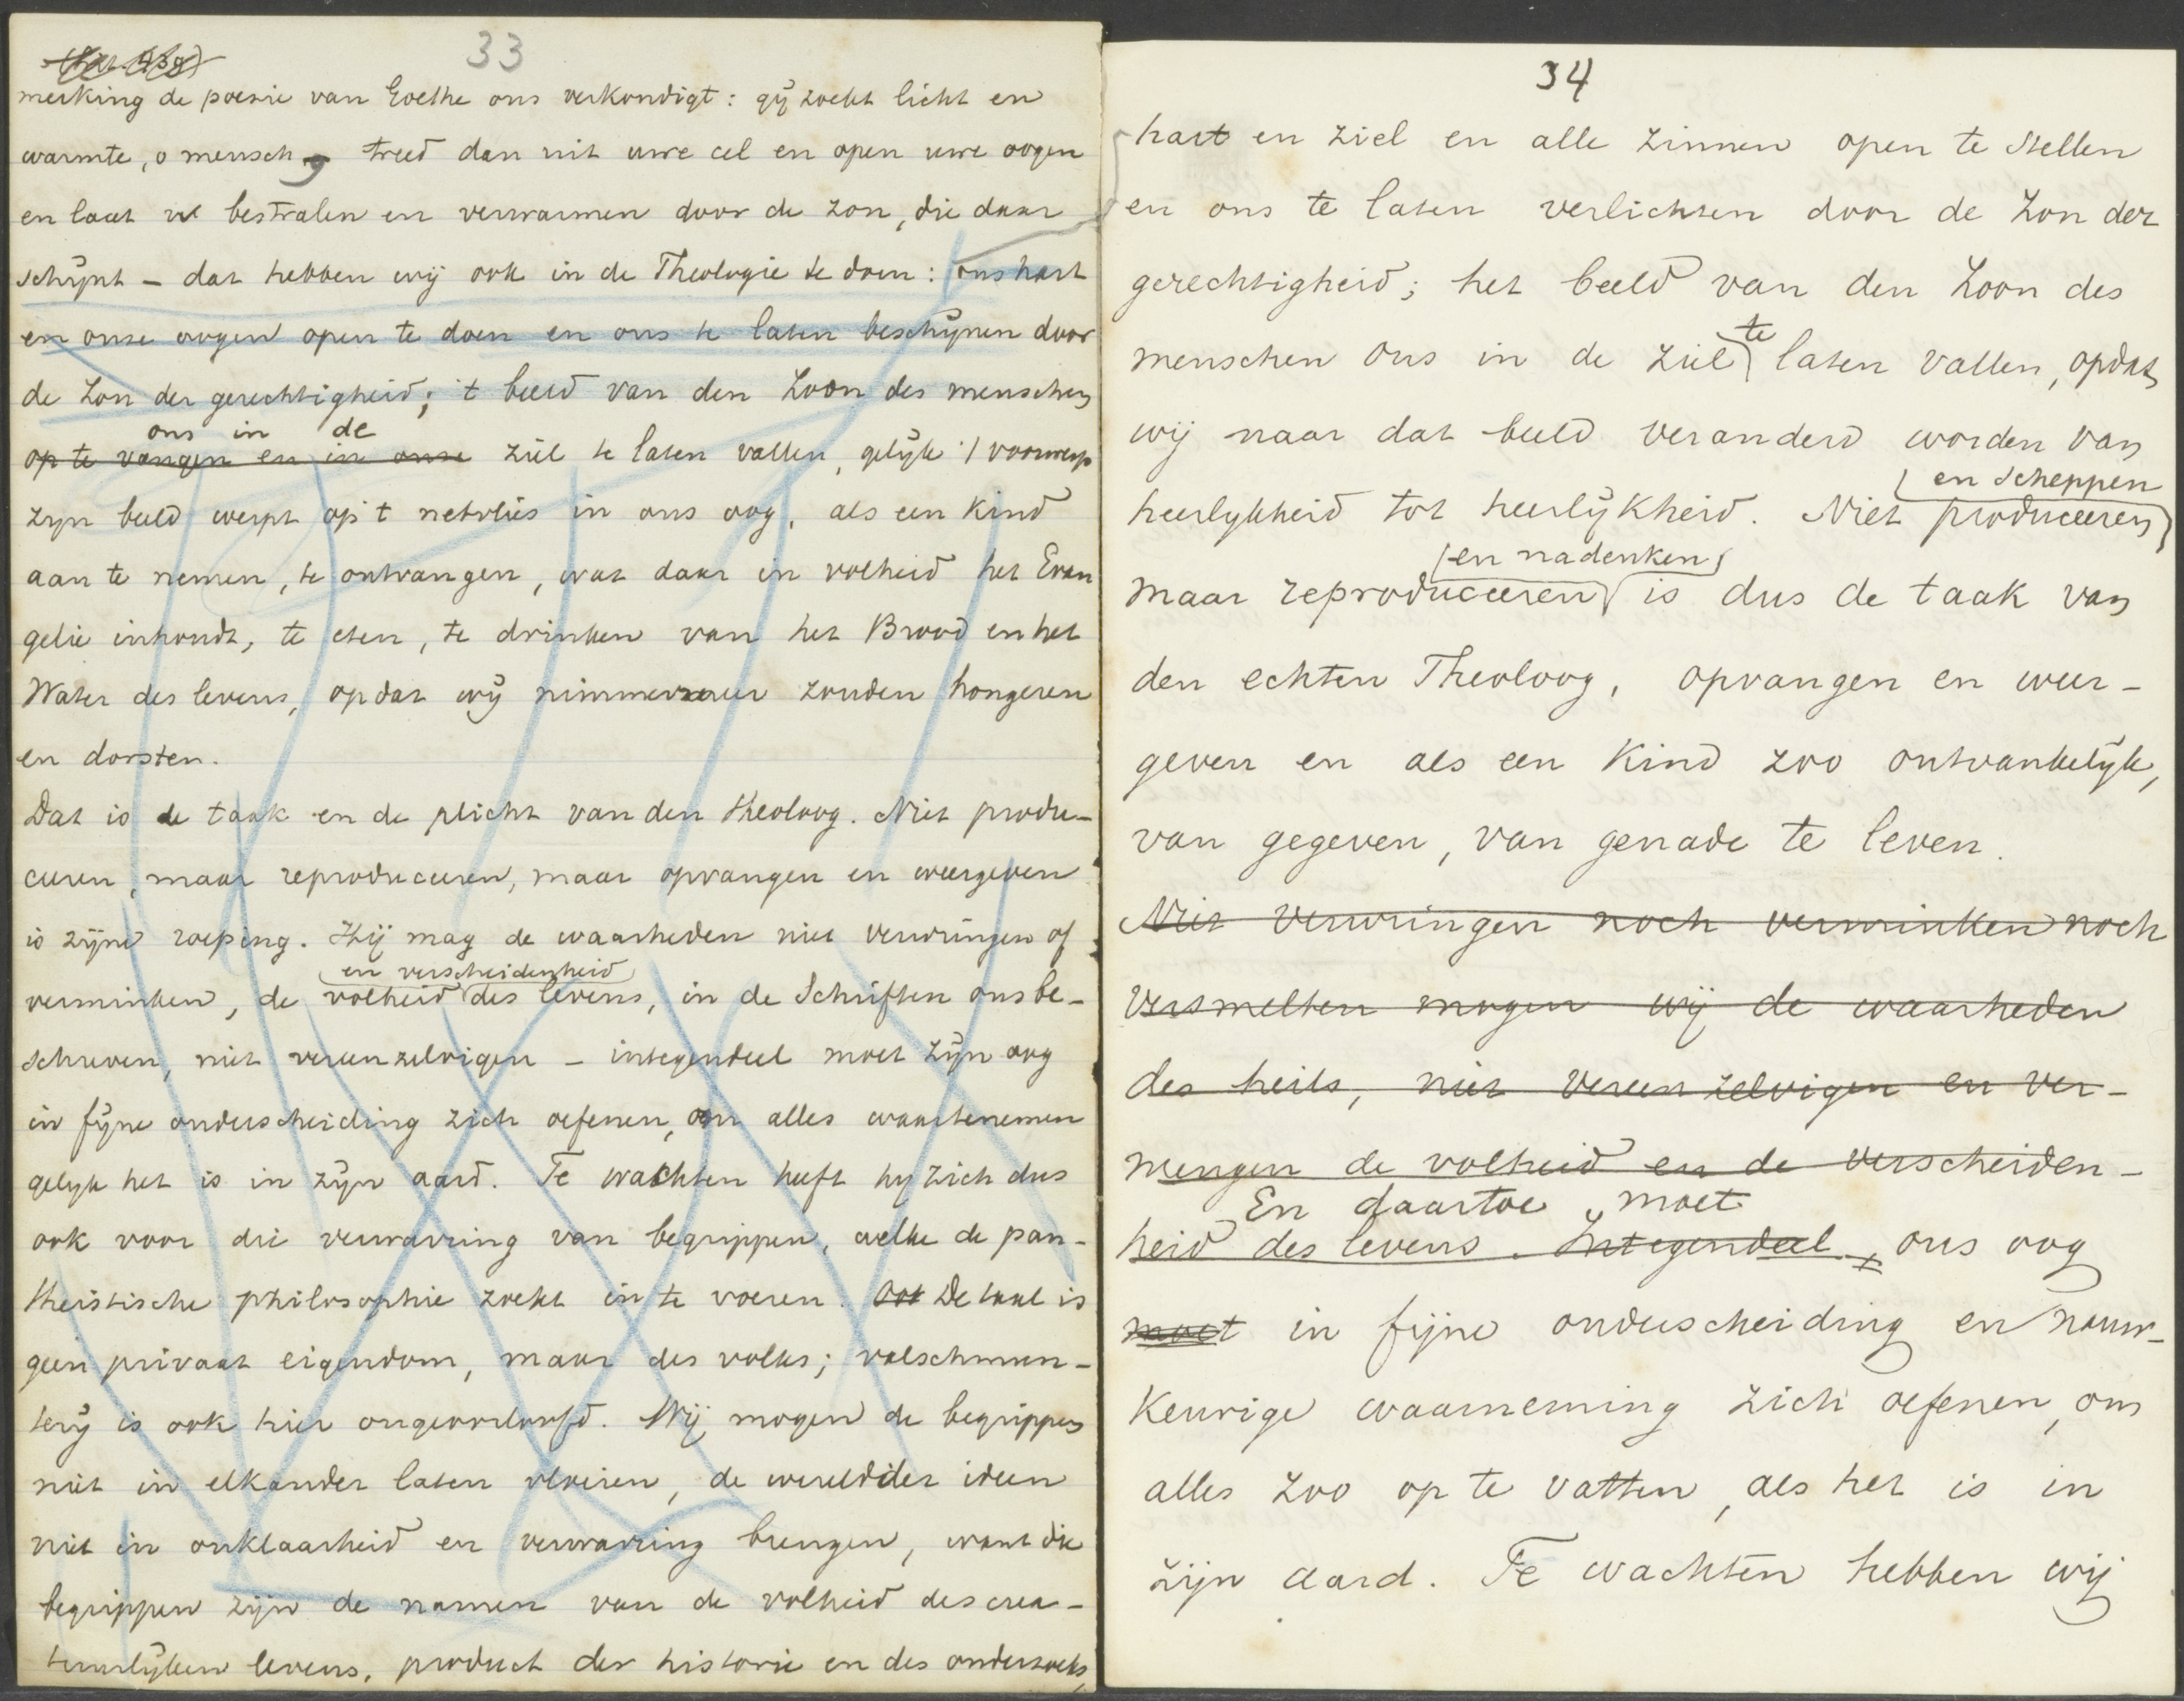 33
merking de poesie van Goethe ons verkondigt: gij zoekt licht en
warmte, o mensch, treed dan uit uwe cel en open uwe oogen
en laat u bestralen en verwarmen door de zon, die daar
schijnt – dat hebben wij ook in de Theologie te doen: ons hart
en onze oogen open te doen en ons te laten beschijnen door
de Zon der gerechtigheid; 't beeld van den Zoon des menschen
ons in de
op te vangen en in onze ziel te laten vallen, gelijk 't voorwerp
zijn beeld werpt op 't netvlies in ons oog, als een Kind
aan te nemen, te ontvangen, wat daar in volheid het Evan
gelie inhoudt, te eten, te drinken van het Brood en het
Water des levens, opdat wij nimmermeer zouden hongeren
en dorsten.
Dat is de taak en de plicht van den theoloog. Niet produ-
ceeren, maar reproduceeren, maar opvangen en weergeven
is zijne roeping. Hij mag de waarheden niet verwringen of
en verscheidenheid
verminken, de volheid des levens, in de Schriften ons be-
schreven, niet vereenzelvigen – integendeel moet zijn oog
in fijne onderscheiding zich oefenen, om alles waartenemen
gelijk het is in zijn aard. Te wachten heeft hij zich dus
ook voor die verwarring van begrippen, welke de pan-
theistische philosophie zoekt in te voeren. Ook De taal is
geen privaat eigendom, maar des volks; valschmun-
terij is ook hier ongeoorloofd. Wij mogen de begrippen
niet in elkander laten vloeien, de wereld der ideen
niet in onklaarheid en verwarring brengen, want die
begrippen zijn de namen van de volheid des crea-
tuurlijken levens, product der historie en des onderzoeks,
34
hart en ziel en alle zinnen open te stellen
en ons te laten verlichten door de Zon der
gerechtigheid; het beeld van den Zoon des
te
menschen ons in de ziel laten vallen, opdat
wij naar dat beeld veranderd worden van
en scheppen
heerlijkheid tot heerlijkheid. Niet produceeren
en nadenken
maar reproduceeren is dus de taak van
den echten Theoloog, opvangen en weer-
geven en als een Kind zoo ontvankelijk,
van gegeven, van genade te leven.
Niet verwringen noch verminken noch
versmelten mogen wij de waarheden
des heils, niet vereenzelvigen en ver-
mengen de volheid en de verscheiden-
En daartoe moet
heid des levens. Integendeel, ons oog
moet in fijne onderscheiding en nauw-
keurige waarneming zich oefenen, om
alles zoo op te vatten, als het is in
zijn aard. Te wachten hebben wij